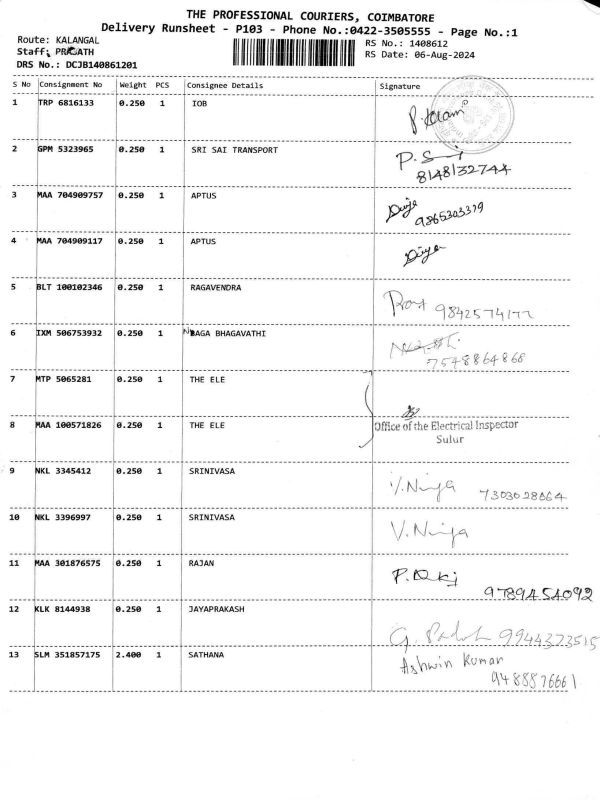 THE PROFESSIONAL COURIERS, COIMBATORE
Delivery Runsheet - P103 - Phone No.:0422-3505555 - Page No.:1
Route: KALANGAL
RS No.: 1408612
Staff:
RS Date: 06-Aug-2024
DRS No.: DCJB140861201
S No Consignment No Weight PCS Consignee Details Signature
1 TRP 6816133 0.250 1 IOB
2 GPM 5323965 0.250 1 SRI SAI TRANSPORT
8148132744
3 MAA 704909757 0.250 1 APTUS
9865303379
4 MAA 704909117 0.250 1 APTUS Divya
5 BLT 100102346 0.250 1 RAGAVENDRA
9842574177
6 IXM 506753932 0.250 1 NAGA BHAGAVATHI
7548864868
7 MTP 5065281 0.250 1 THE ELE
8 MAA 100571826 0.250 1 THE ELE Office of the Electrical Inspector
Sulur
9 NKL 3345412 0.250 1 SRINIVASA
7303028664
10 NKL 3396997 0.250 1 SRINIVASA
11 MAA 301876575 0.250 1 RAJAN
9789454092
12 KLK 8144938 0.250 1 JAYAPRAKASH
9944323515
13 SLM 351857175 2.400 1 SATHANA Ashwin Kumar
9488876661